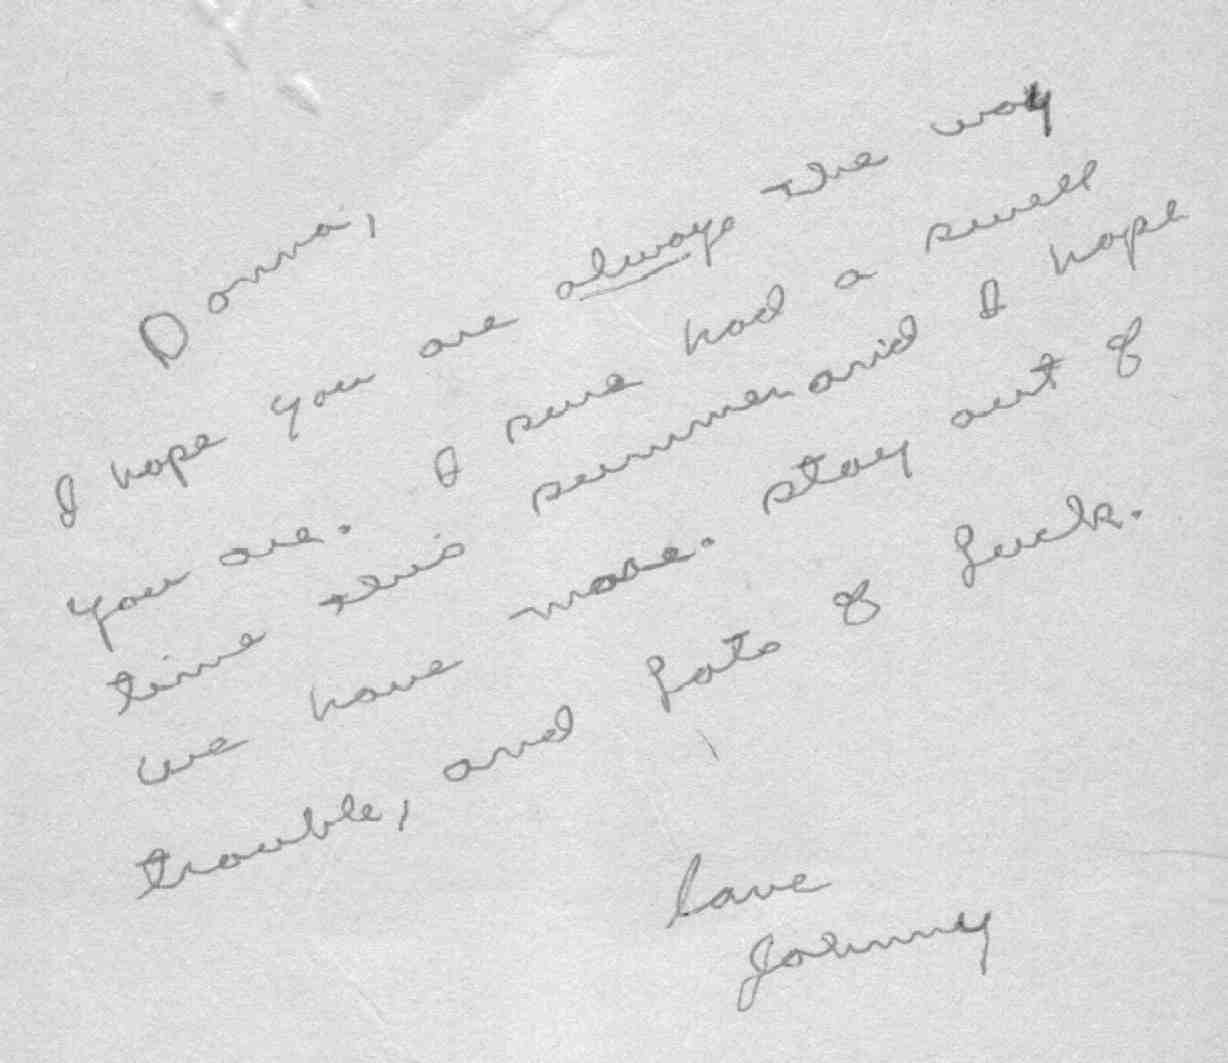 Donna,
I hope you are always the way
you are. I sure had a swell
time this summer and I hope
we have more. stay out of
trouble, and Lots of Luck.
Love
Johnny